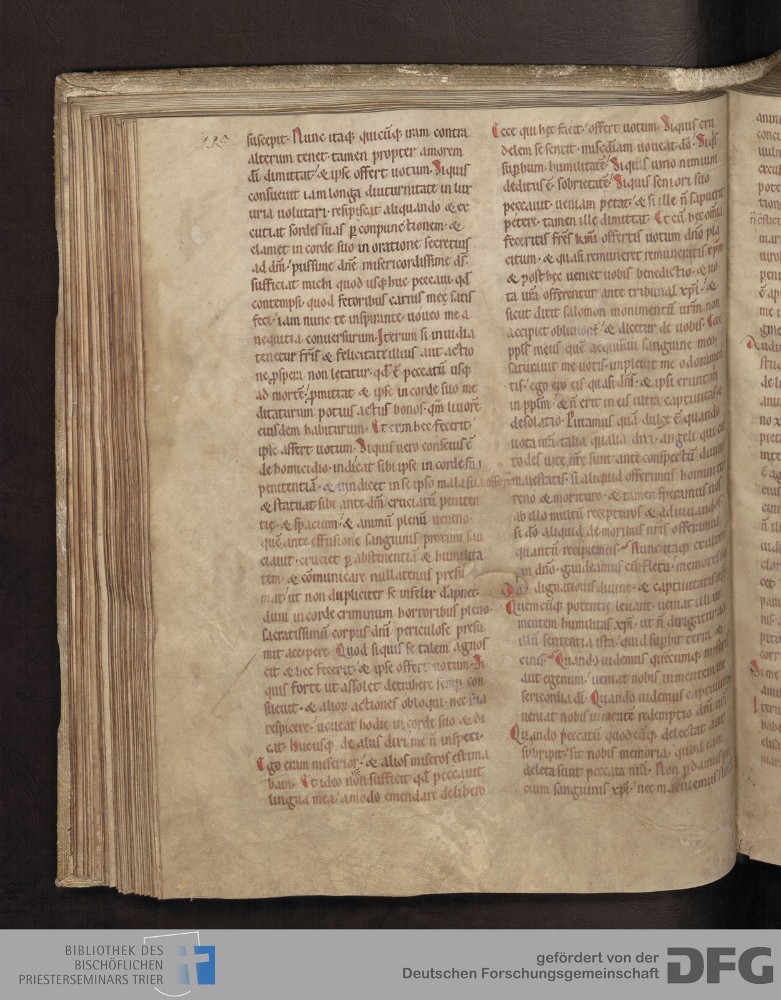 suscepit. Nunc itaq; quicūq; iram contra
alterum tenet. tamen propter amorem
dī dimittat. & ipse offert uotum. Siquis
consueuit iam longa diuturnitate in lux
uria uolutari. resipiscat aliquando & ex
cutiat sordes suas p conpunctionem. &
clamet in corde suo in oratione secretius
ad dm̄. piissime dn̄e misericordissime ds̄.
sufficiat michi quod usq; huc peccaui. qd̄
contempsi. quod fetoribus carnis meę satis
feci. iam nunc te inspirante. uoueo me a
nequitia conuersurum. Iterum si inuidia
tenetur fr̄is & felicitate illius aut actio
ne pspera non lętatur. qd̄ ē peccatū usq;
ad mortē. pmittat & ipse in corde suo me
ditaturum potius actus bonos. qm̄ liuorē
eiusdem habiturum. Et cum hec fecerit.
ipse affert uotum. Siquis uero conscius ē
de homicidio. indicat sibi ipse in corde
penitentiā. & uindicet in se ipso mala sua
& statuat sibi ante dm̄ cruciatū peniten
tię. & spacium. & animū plenū ueneno.
quē ante effusione sanguinis proximi sau
ciauit. cruciet p abstinentiā & humilita
tem. & cōmunicare nullatenus presu
mat. ut non dupliciter se infelix dapnet.
dum in corde criminum horroribus pleno.
sacratissimū corpus dn̄i periculose presu
mit accipere. Quod siquis se talem agnos
cit & hec fecerit. & ipse offert uotum. Si
quis forte ut assolet detrahere semp con
sueuit. & alioꝝ actiones obloqui. nec sua
respicere. uoueat hodie in corde suo & di
cat. hucusq; de aliis dixi. me n̄ inspexi.
Ego eram miserior. & alios miseros estima
bam. Et ideo non sufficit qd̄ peccauit
lingua mea. amodo emendare delibero
Ecce qui hęc facit. offert uotum. Siquis cru
delem se sensit. misc̄diam uoueat dō. Siq̄s
supbum. humilitatē. Siquis uino nimium
deditus ē. sobrietatē. Siquis seniori suo
peccauit. ueniam petat. & si ille n̄ sapuerit
petere. tamen ille dimittat. Et cū hęc omīa
feceritis fr̄es kmi. offertis uotum dn̄o pla
citum. & quasi remuneret remuneritis xp̄m
& post hęc ueniet uobis benedictio. & uo
ta ūra offerentur ante tribunal xp̄i. &
sicut dixit salomon monimentū ūrm non
accipiet obliuionē. & dicetur de uobis. Ecce
ppl̄s meus quē acquisiui sanguine meo
saturauit me uotis. impleuit me odoramen
tis. ego ero eis quasi dn̄s. & ipsi erunt m̄
in pplm̄. & n̄ erit in eis ultra captiuitas &
desolatio. Putamus quā dulce ē quando
uota nr̄a talia qualia dixi. angeli qui cus
todes uitę nr̄ę sunt. ante conspectū diuinę
offert maiestatis. si aliquid offerimus homini ter
reno & morituro. & tamen speramus nos
ab illo multū recepturos & adiuuandos.
si dō aliquid de moribus nr̄is offerimus
quantū recipiemus. Nunc itaq; exultem
in dn̄o. gaudeamus cū fletu. memores
dignationis diuine. & captiuitatis nr̄ę
Quemcūq; potentię leuant. ueniat illi in
mentem humilitas xp̄i. ut n̄ dirigatur ad
illū sententia ista. quid supbit terra &
cinis. Quando uidemus quecumq; miser
aut egenum. ueniat nobis in mentem mi
sericordia dī. Quando uidemus captiuum
ueniat nobis in mentē redemptio dn̄i nr̄i
Quando peccatū quodcūq; delectat aut
subripit. sit nobis memoria. quod iam
deleta sunt peccata nr̄a. Non pdamus p
cium sanguinis xp̄i. nec maculemus
BIBLIOTHEK DES
BISCHÖFLICHEN
PRIESTERSEMINARS TRIER
gefördert von der
Deutschen Forschungsgemeinschaft
DFG